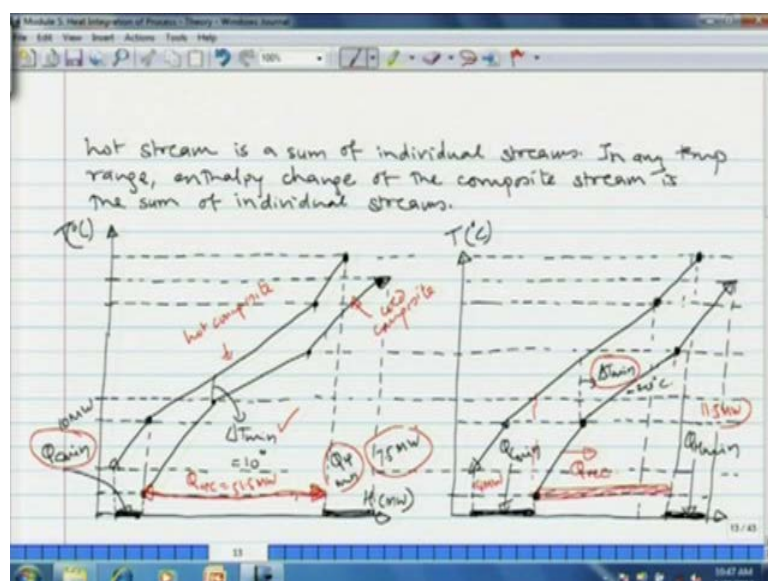 Module 5. Heat Integration of Process - Theory - Windows Journal
File Edit View Insert Actions Tools Help
100%
hot stream is a sum of individual streams. In any temp
range, enthalpy change of the composite stream is
the sum of individual streams.
T(°C)
hot composite
cold composite
10MW
Qcmin
ΔTmin
=10°
QREC = 51.5MW
17.5MW
H(MW)
T(°C)
ΔTmin
=20°C
Qcmin
QREC
QHmin
13/43
13
10:47 AM